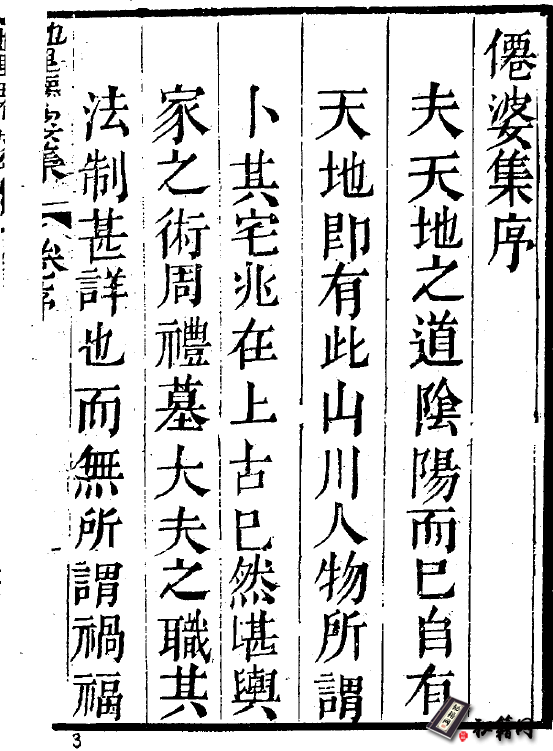 僊婆集序
夫天地之道陰陽而已自有
天地即有此山川人物所謂
卜其宅兆在上古已然堪輿
家之術周禮墓大夫之職其
法制甚詳也而無所謂禍福
集 卷序
3
秘籍网